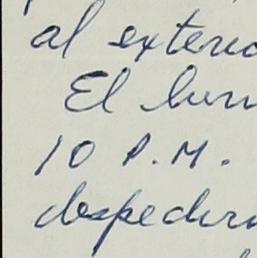 al exterio
El lun
10 P.M.
despedir